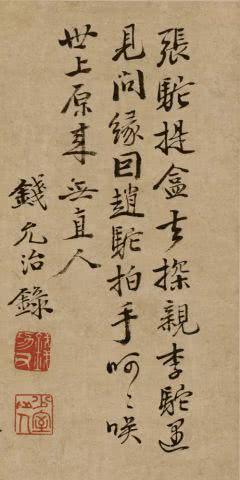 張駝提盒去探親李駝遇
見問緣因趙駝拍手呵〻咲
世上原來無直人
錢允治錄